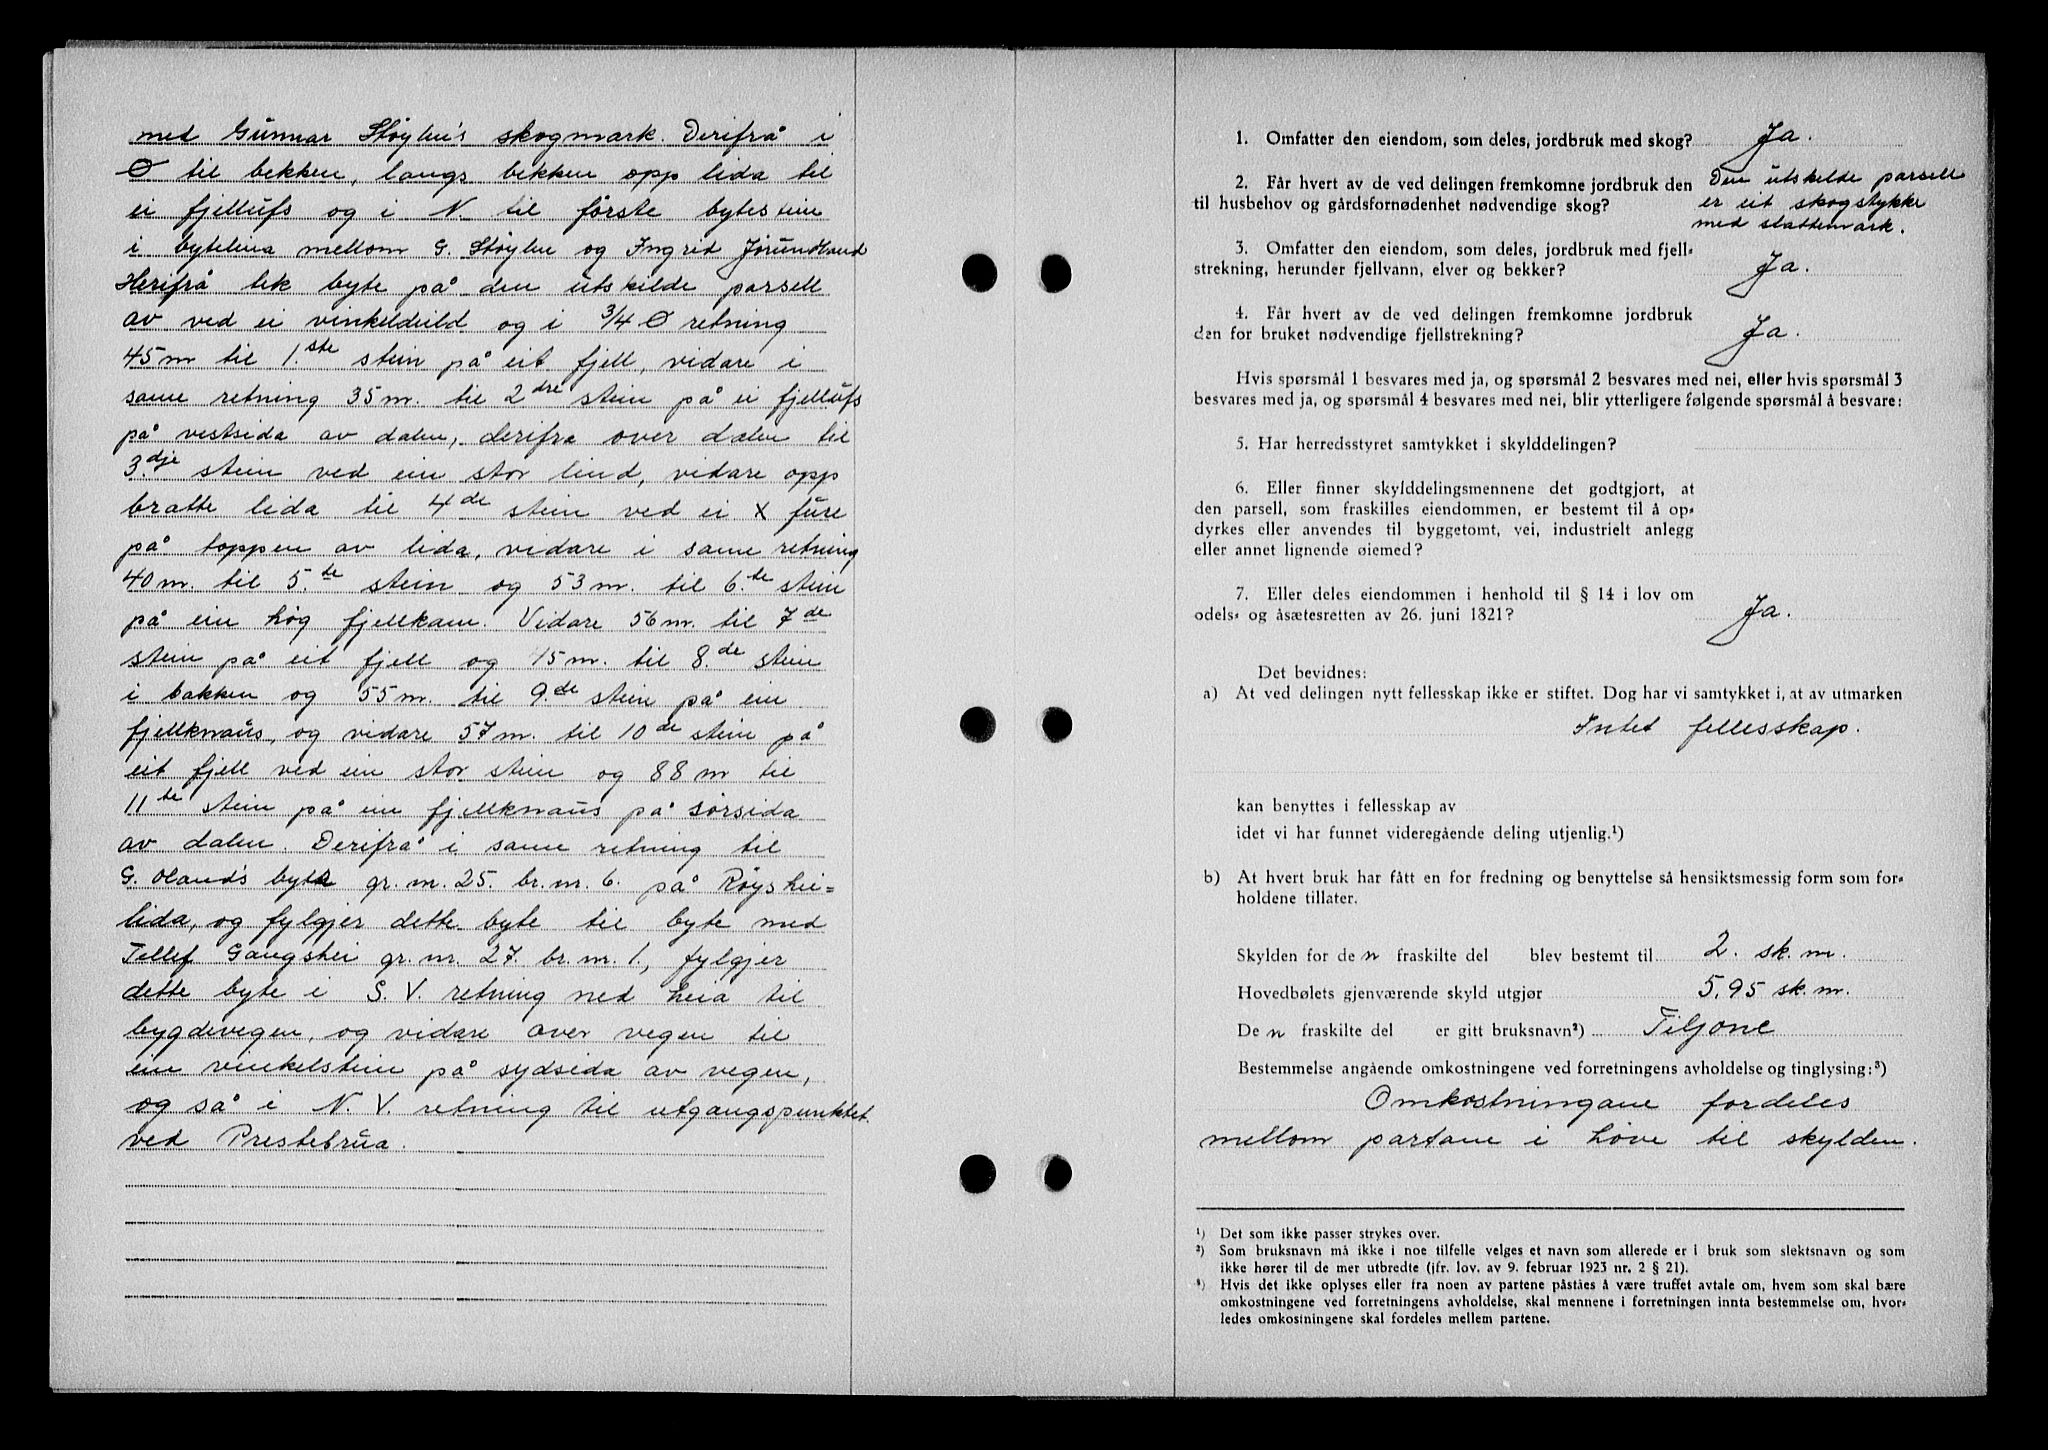 med Gunnar Støylen's skogmark. Derifrå i
Ø til bekken, langs bekken opp lida til
ei fjellufs og i N. til første bytestein
i bytelina mellom G. Støylen og Ingrid Jørundland
Herifrå tek byte på den utskilde parsell
av ved ei vinkeldeild og i 3/4 Ø retning
45 m til 1.ste stein på eit fjell, vidare i
same retning 35 m. til 2dre stein på ei fjellufs
på vestsida av dalen, derifra over dalen til
3.dje stein ved ein stor lind, vidare opp
bratte lida til 4de stein ved ei x fure
på toppen av lida, vidare i same retning
40 m. til 5.te stein og 53 m. til 6.te stein
på ein høg fjellkam. Vidare 56 m. til 7de
stein på eit fjell og 15 m. til 8.de stein
i bakken og 55 m. til 9.de stein på ein
fjellknaus, og vidare 57 m. til 10de stein på
eit fjell ved ein stor stein og 88 m til
11te stein på ein fjellknaus på sørsida
av dalen. Derifrå i same retning til
G. Oland's byte gr. nr. 25. br. nr. 6. på Røyshei=
lida, og fylgjer dette byte til byte med
Tellef Gangshei gr. nr. 27 br. nr. 1., fylgjer
dette byte i S. V. retning ned heia til
bygdevegen, og vidare over vegen til
ein vinkelstein på sydsida av vegen,
og så i N. V. retning til utgangspunktet
ved Prestebrua.
1. Omfatter den eiendom, som deles, jordbruk med skog? Ja.
2. Får hvert av de ved delingen fremkomne jordbruk den
til husbehov og gårdsfornødenhet nødvendige skog?
Den utskilde parsell
er eit skogstykke
med slåttemark.
3. Omfatter den eiendom, som deles, jordbruk med fjell-
strekning, herunder fjellvann, elver og bekker? Ja.
4. Får hvert av de ved delingen fremkomne jordbruk
den for bruket nødvendige fjellstrekning? Ja.
Hvis spørsmål 1 besvares med ja, og spørsmål 2 besvares med nei, eller hvis spørsmål 3
besvares med ja, og spørsmål 4 besvares med nei, blir ytterligere følgende spørsmål å besvare:
5. Har herredsstyret samtykket i skylddelingen?
6. Eller finner skylddelingsmennene det godtgjort, at
den parsell, som fraskilles eiendommen, er bestemt til å op-
dyrkes eller anvendes til byggetomt, vei, industrielt anlegg
eller annet lignende øiemed?
7. Eller deles eiendommen i henhold til § 14 i lov om
odels- og åsætesretten av 26. juni 1821? Ja.
Det bevidnes:
a) At ved delingen nytt fellesskap ikke er stiftet. Dog har vi samtykket i, at av utmarken
Intet fellesskap.
kan benyttes i fellesskap av
idet vi har funnet videregående deling utjenlig.¹)
b) At hvert bruk har fått en for fredning og benyttelse så hensiktsmessig form som for-
holdene tillater.
Skylden for den fraskilte del blev bestemt til 2. sk. m.
Hovedbølets gjenværende skyld utgjør 5,95 sk. m.
Den fraskilte del er gitt bruksnavn²) Tiljone
Bestemmelse angående omkostningene ved forretningens avholdelse og tinglysing:³)
Omkostningane fordeles
mellom partane i høve til skylden.
¹) Det som ikke passer strykes over.
²) Som bruksnavn må ikke i noe tilfelle velges et navn som allerede er i bruk som slektsnavn og som
ikke hører til de mer utbredte (jfr. lov. av 9. februar 1923 nr. 2 § 21).
³) Hvis det ikke oplyses eller fra noen av partene påståes å være truffet avtale om, hvem som skal bære
omkostningene ved forretningens avholdelse, skal mennene i forretningen innta bestemmelse om, hvor-
ledes omkostningene skal fordeles mellem partene.